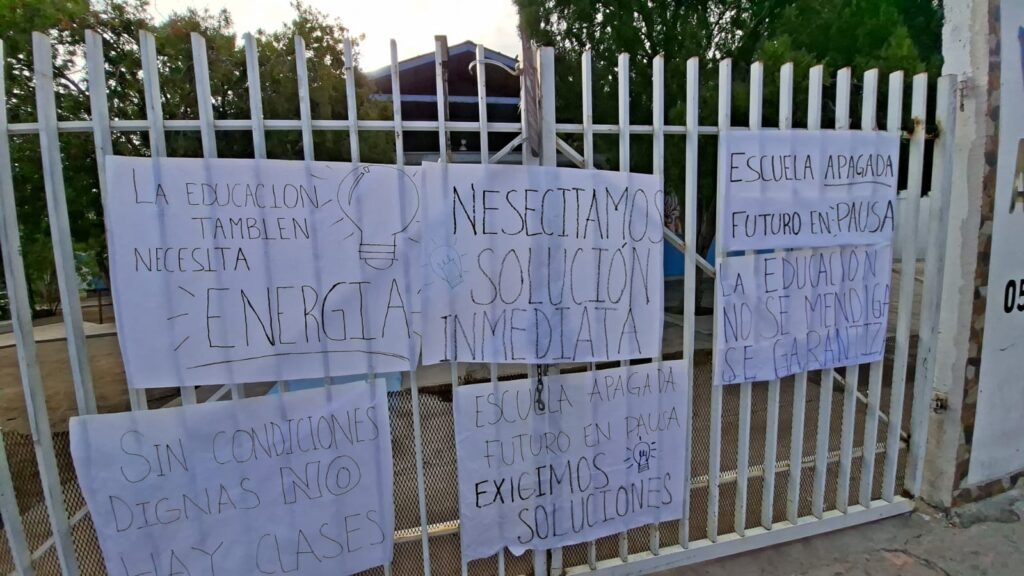 LA EDUCACION
TAMBIEN
NECESITA
ENERGIA
NESECITAMOS
SOLUCIÓN
INMEDIATA
ESCUELA APAGADA
FUTURO EN PAUSA
LA EDUCACIÓN
NO SE MENDIGA
SE GARANTIZ
SIN CONDICIONES
DIGNAS NO
HAY CLASES
ESCUELA APAGADA
FUTURO EN PAUSA
EXIGIMOS
SOLUCIONES
05